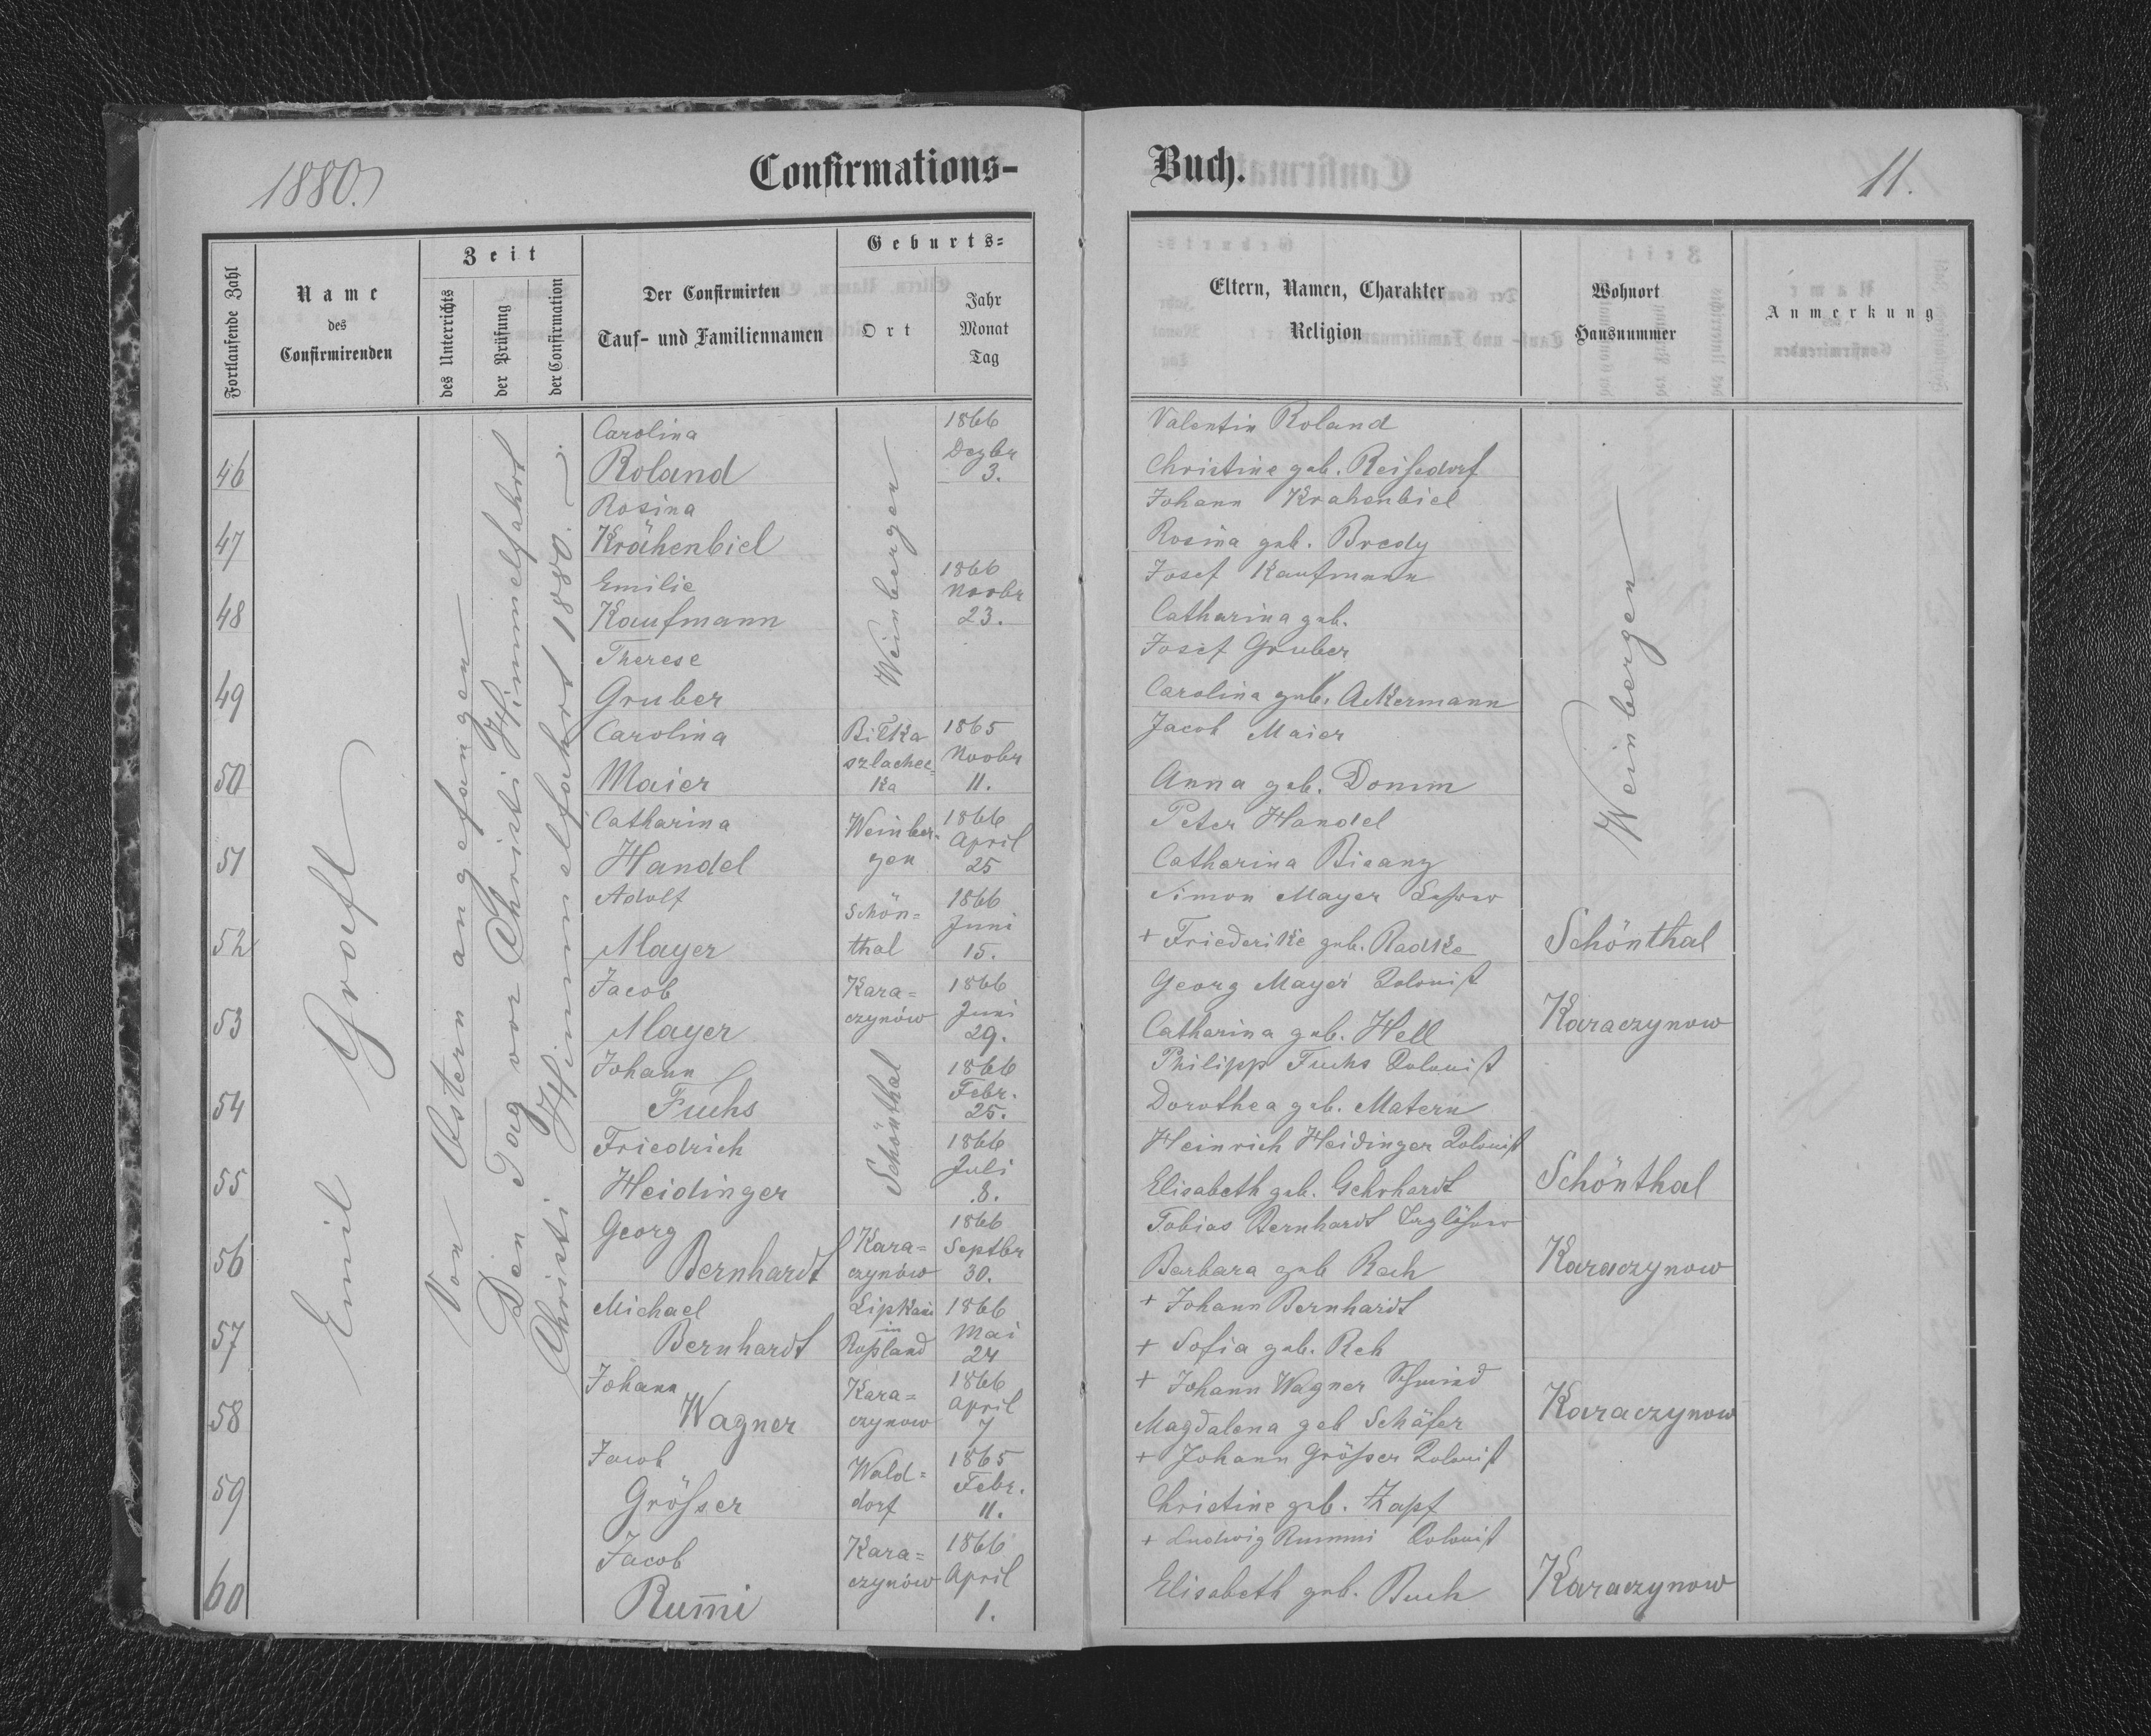 1880.
Confirmations-
Fortlaufende Zahl
Name
des
Confirmirenden
Zeit
des Unterrichts
der Prüfung
der Confirmation
Der Confirmirten
Tauf- und Familiennamen
Geburts=
Ort
Jahr
Monat
Tag
Emil Grafl
Von Ostern angefangen
Den Tag vor Christi Himmelfahrt
Christi Himmelfahrt 1880.
46
Carolina
Roland
1866
Dezbr
3.
Weinbergen
47
Rosina
Krähenbiel
48
Emilie
Kaufmann
1866
Novbr
23.
49
Therese
Gruber
50
Carolina
Maier
Biłka
szlachec=
ka
1865
Novbr
11.
51
Catharina
Handel
Weinber-
gen
1866
April
25
52
Adolf
Mayer
Schön=
thal
1866
Juni
15.
53
Jacob
Mayer
Kara=
czynów
1866
Juni
29.
54
Johann
Fuchs
Schönthal
1866
Febr.
25.
55
Friedrich
Heidinger
1866
Juli
8.
56
Georg
Bernhardt
Kara=
czynów
1866
Septbr
30.
57
Michael
Bernhardt
in
Rußland
1866
Mai
24
58
Johann
Wagner
Kara=
czynow
1866
April
7
59
Jacob
Größer
Wald=
dorf
1865
Febr.
11.
60
Jacob
Rum̅i
Kara=
czynów
1866
April
1.
Buch.
11.
Eltern, Namen, Charakter
Religion
Wohnort
Hausnummer
Anmerkung
Valentin Roland
Christine geb. Reißdorf
Johann Krahenbiel
Rosina geb. Bredy
Josef Kaufmann
Catharina geb.
Josef Gruber
Carolina geb. Ackermann
Jacob Maier
Anna geb. Domm
Peter Handel
Catharina Bisanz
Weinbergen
Simon Mayer Lehrer
+ Friederike geb. Radke
Schönthal
Georg Mayer Colonist
Catharina geb. Hell
Karaczynow
Philipp Fuchs Colonist
Dorothea geb. Matern
Heinrich Heidinger Colonist
Elisabeth geb. Gehrhardt
Schönthal
Tobias Bernhardt
Barbara geb Rech
Karaczynow
+ Johann Bernhardt
+ Sofia geb. Reh
+ Johann Wagner Schmied
Magdalena geb Schäfer
Karaczynow
+ Johann Größer Colonist
Christine geb. Zapf
+ Ludwig Rummi Colonist
Elisabeth geb. Buch
Karaczynow